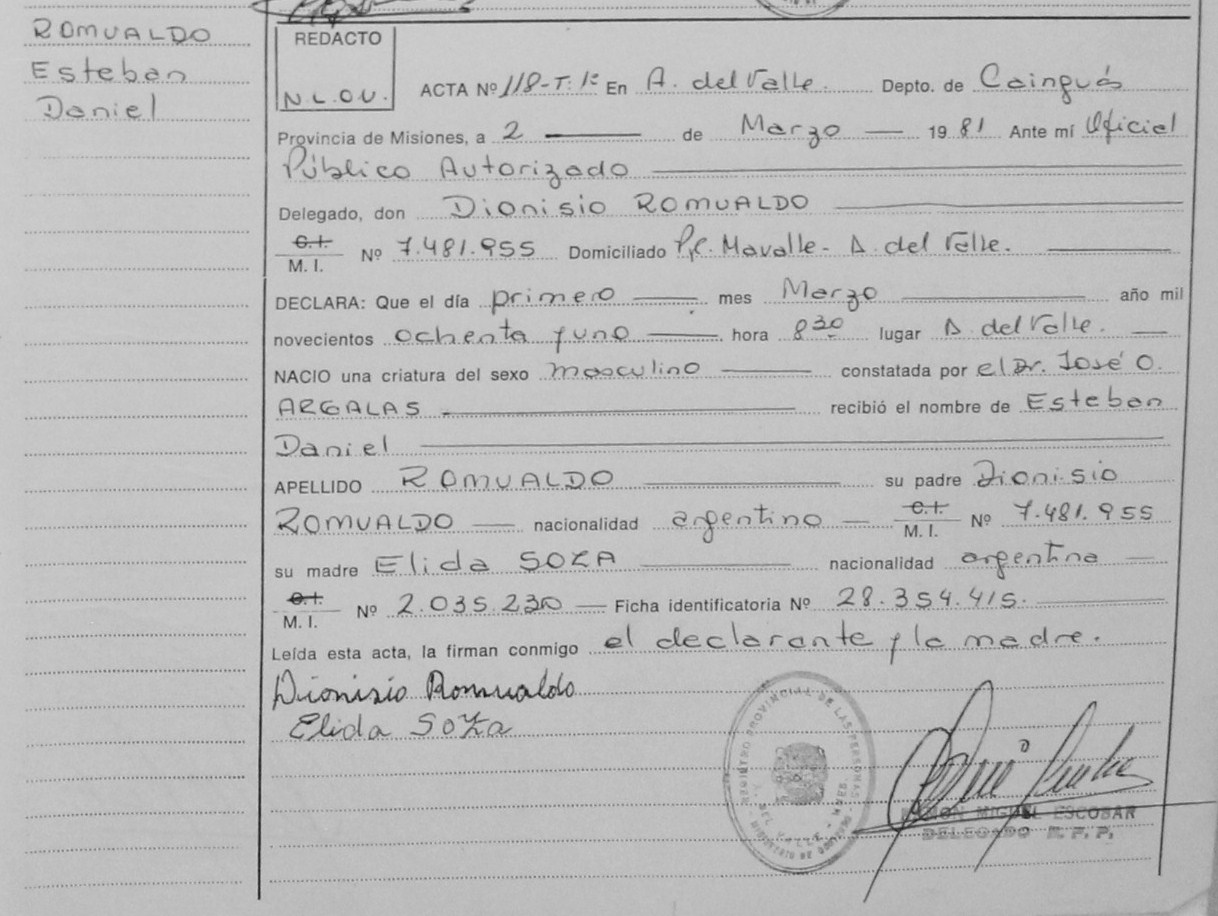 ROMUALDO
Esteban
Daniel
REDACTO
N.L.O.V.
ACTA Nº 118-T:1º En A. del Valle. Depto. de Cainguás
Provincia de Misiones, a 2 de Marzo 19 81 Ante mí Oficial
Público Autorizado
Delegado, don Dionisio ROMUALDO
C.I. M.I. Nº 7.481.955 Domiciliado A. del Valle.
DECLARA: Que el día primero mes Marzo año mil
novecientos ochenta y uno hora 8 30 lugar A. del Valle.
NACIO una criatura del sexo masculino constatada por el Dr. José O.
ARGALAS recibió el nombre de Esteban
Daniel
APELLIDO ROMUALDO su padre Dionisio
ROMUALDO nacionalidad argentino C.I. M.I. Nº 7.481.955
su madre Elida SOZA nacionalidad argentina
C.I. M.I. Nº 2.035.230 Ficha identificatoria Nº 28.354.415.
Leída esta acta, la firman conmigo el declarante y la madre.
Dionisio Romualdo
Elida SoZa
REGISTRO PROVINCIAL DE LAS PERSONAS
MIGUEL ESCOBAR
DELEGADO R.P.P.